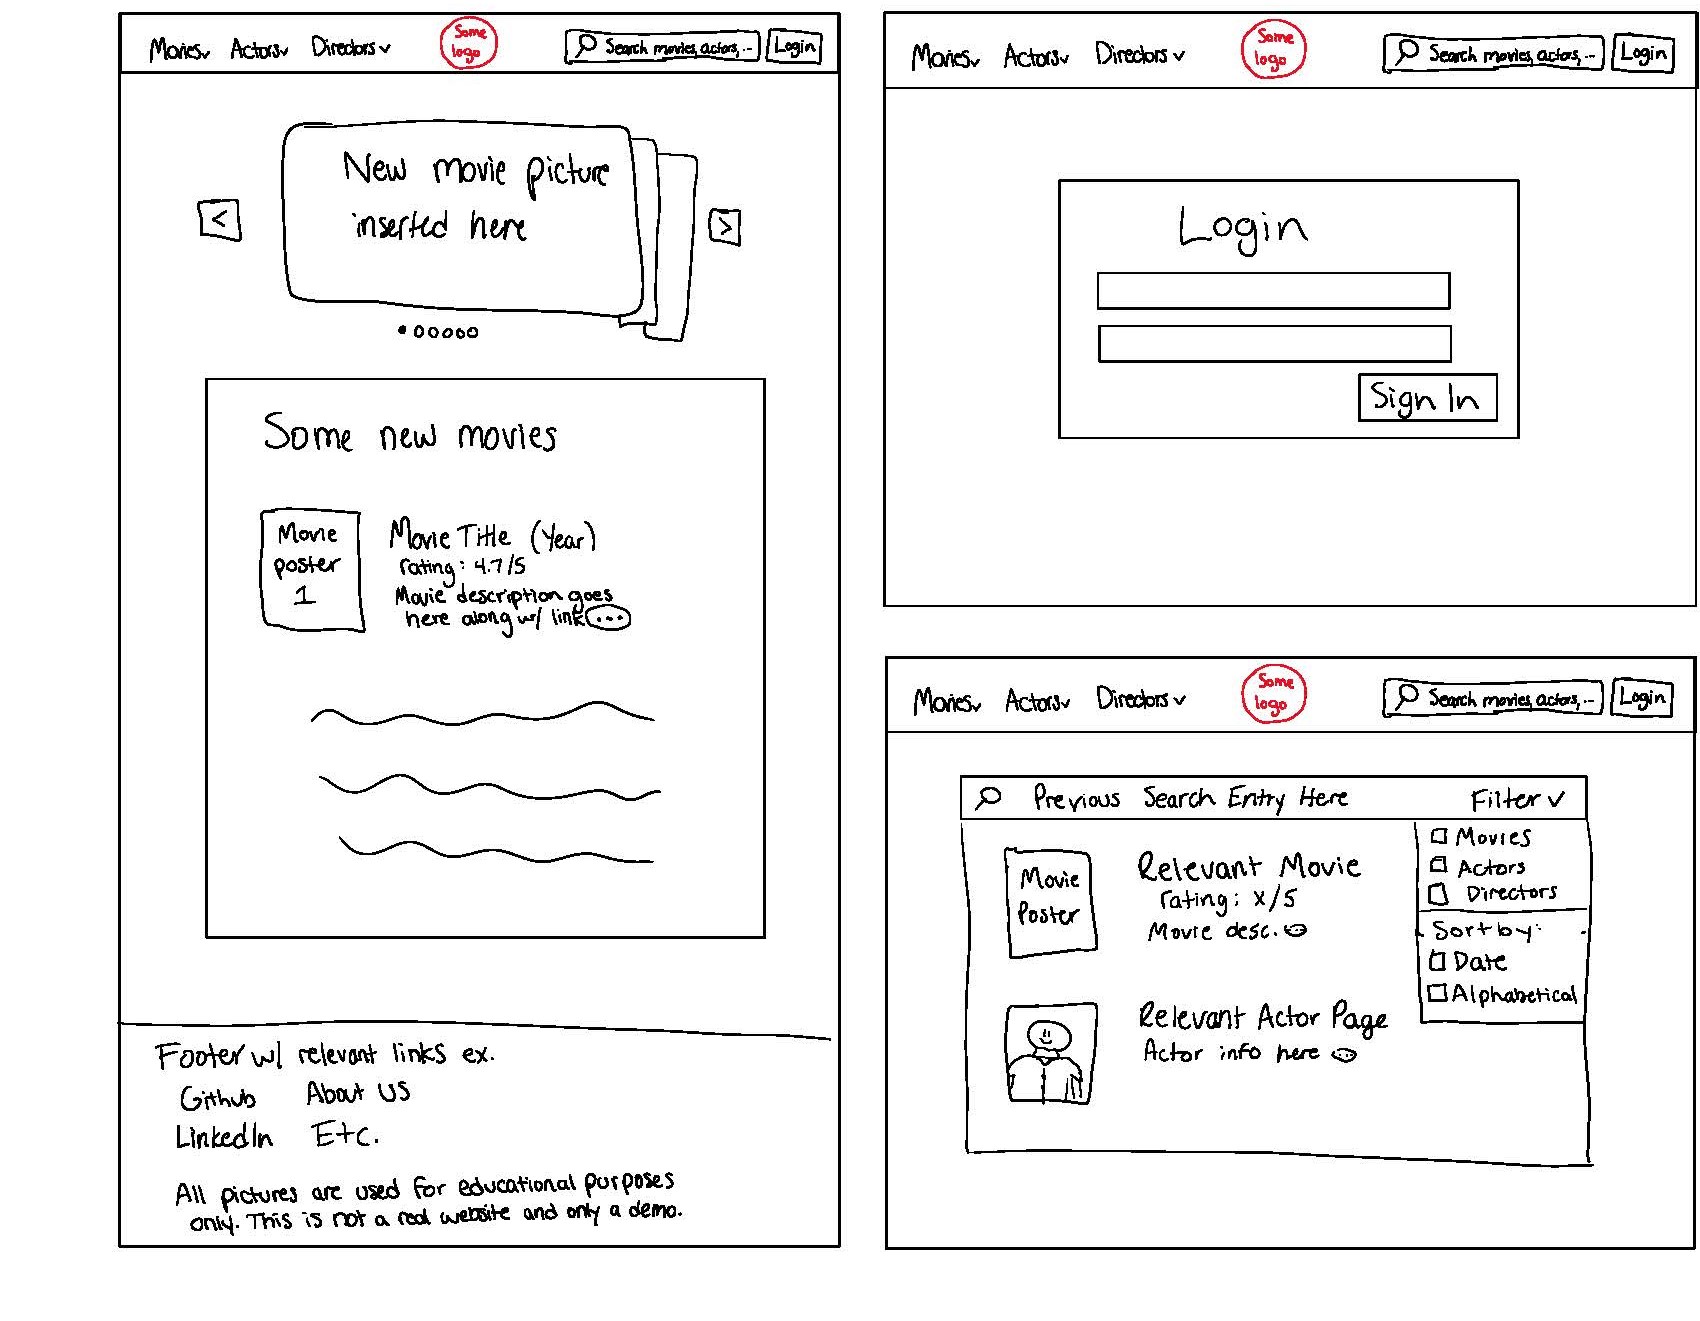 Movies Actors Directors
Some
logo
Search movies, actors, ...
Login
New movie picture
inserted here
<
>
Some new movies
Movie
poster
1
Movie Title (Year)
rating: 4.7/5
Movie description goes
here along w/ link ...
Footer w/ relevant links ex.
Github About US
LinkedIn Etc.
All pictures are used for educational purposes
only. This is not a real website and only a demo.
Movies Actors Directors
Some
logo
Search movies, actors, ...
Login
Login
Sign In
Movies Actors Directors
Some
logo
Search movies, actors, ...
Login
Previous Search Entry Here
Filter
Movies
Actors
Directors
Sort by:
Date
Alphabetical
Movie
Poster
Relevant Movie
rating: x/5
Movie desc. ...
Relevant Actor Page
Actor info here ...